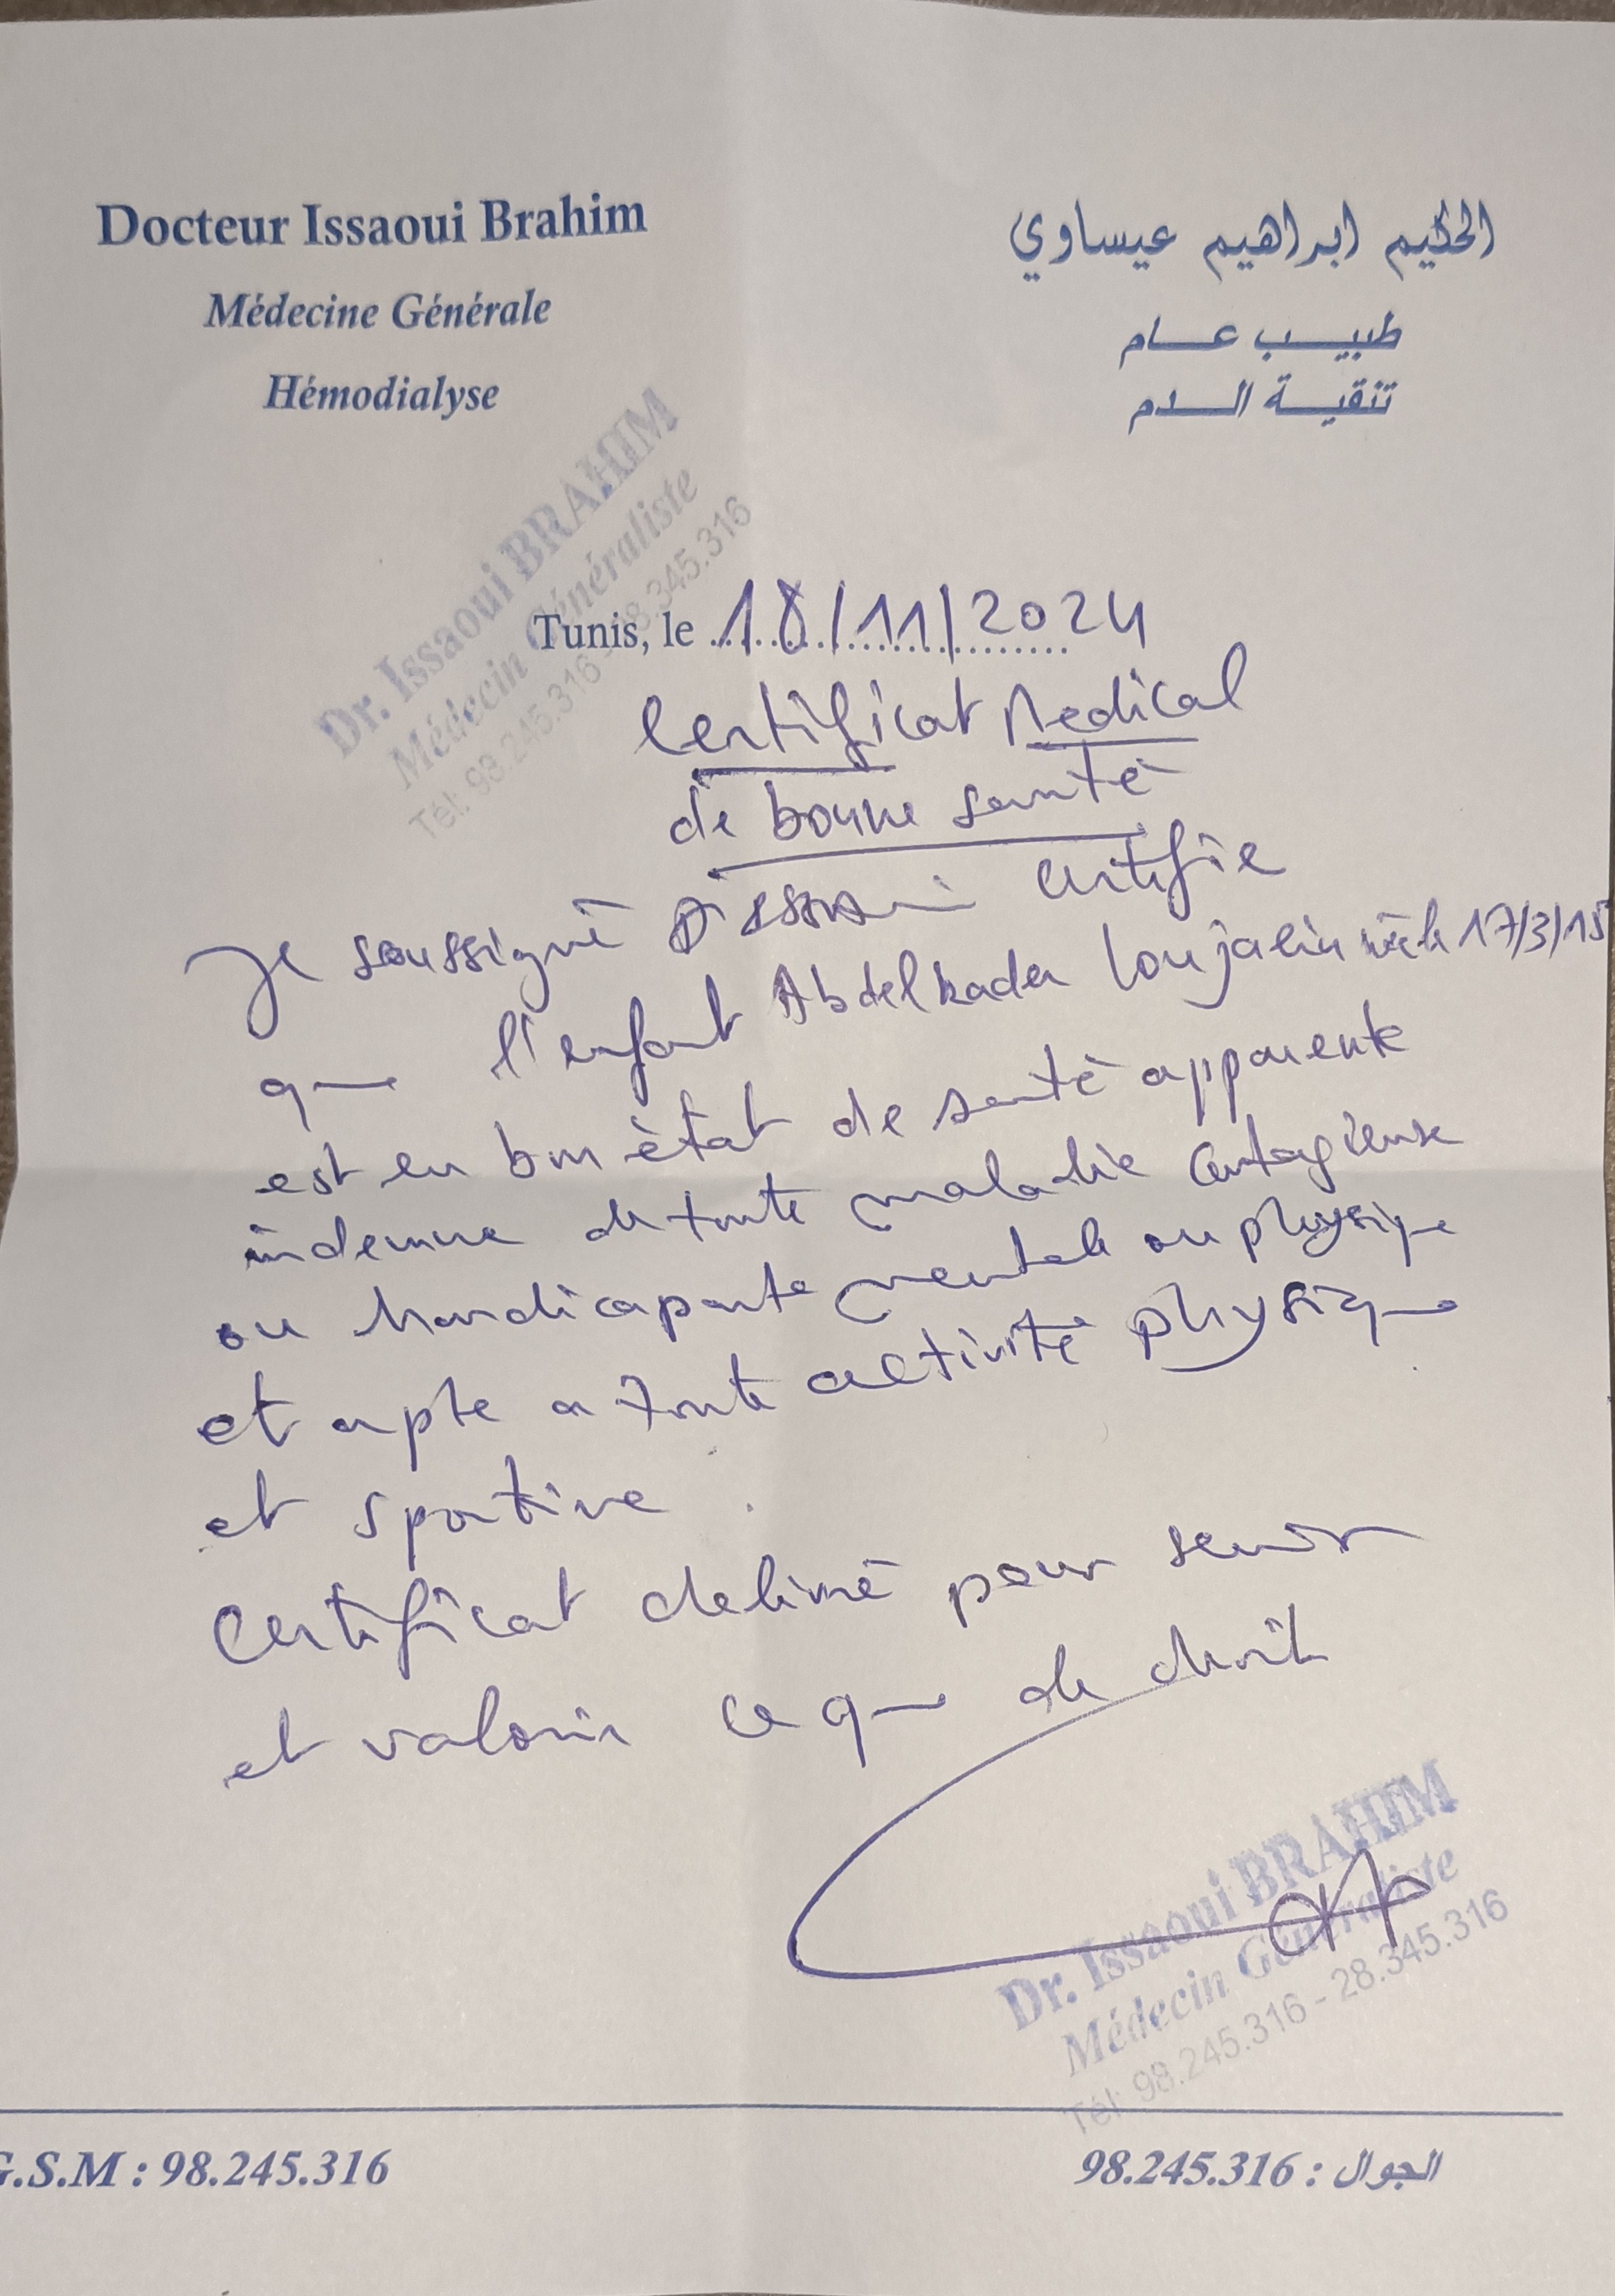 Docteur Issaoui Brahim
Médecine Générale
Hémodialyse
الحكيم ابراهيم عيساوي
طبيب عام
تنقية الدم
Dr. Issaoui BRAHIM
Médecin Généraliste
Tél: 98.245.316 - 28.345.316
Tunis, le 18/11/2024
Certificat Medical
de bonne santé
Je soussigné Dr Issaoui certifie
que l'enfant Abdelkader née le 17/3/15
est en bon état de santé apparente
indemne de toute maladie contagieuse
ou handicapante mentale ou physique
et apte a toute activité physique
et sportive.
Certificat delivré pour servir
et valoir ce que de droit
Dr. Issaoui BRAHIM
Médecin Généraliste
Tél: 98.245.316 - 28.345.316
G.S.M : 98.245.316
الجوال : 98.245.316